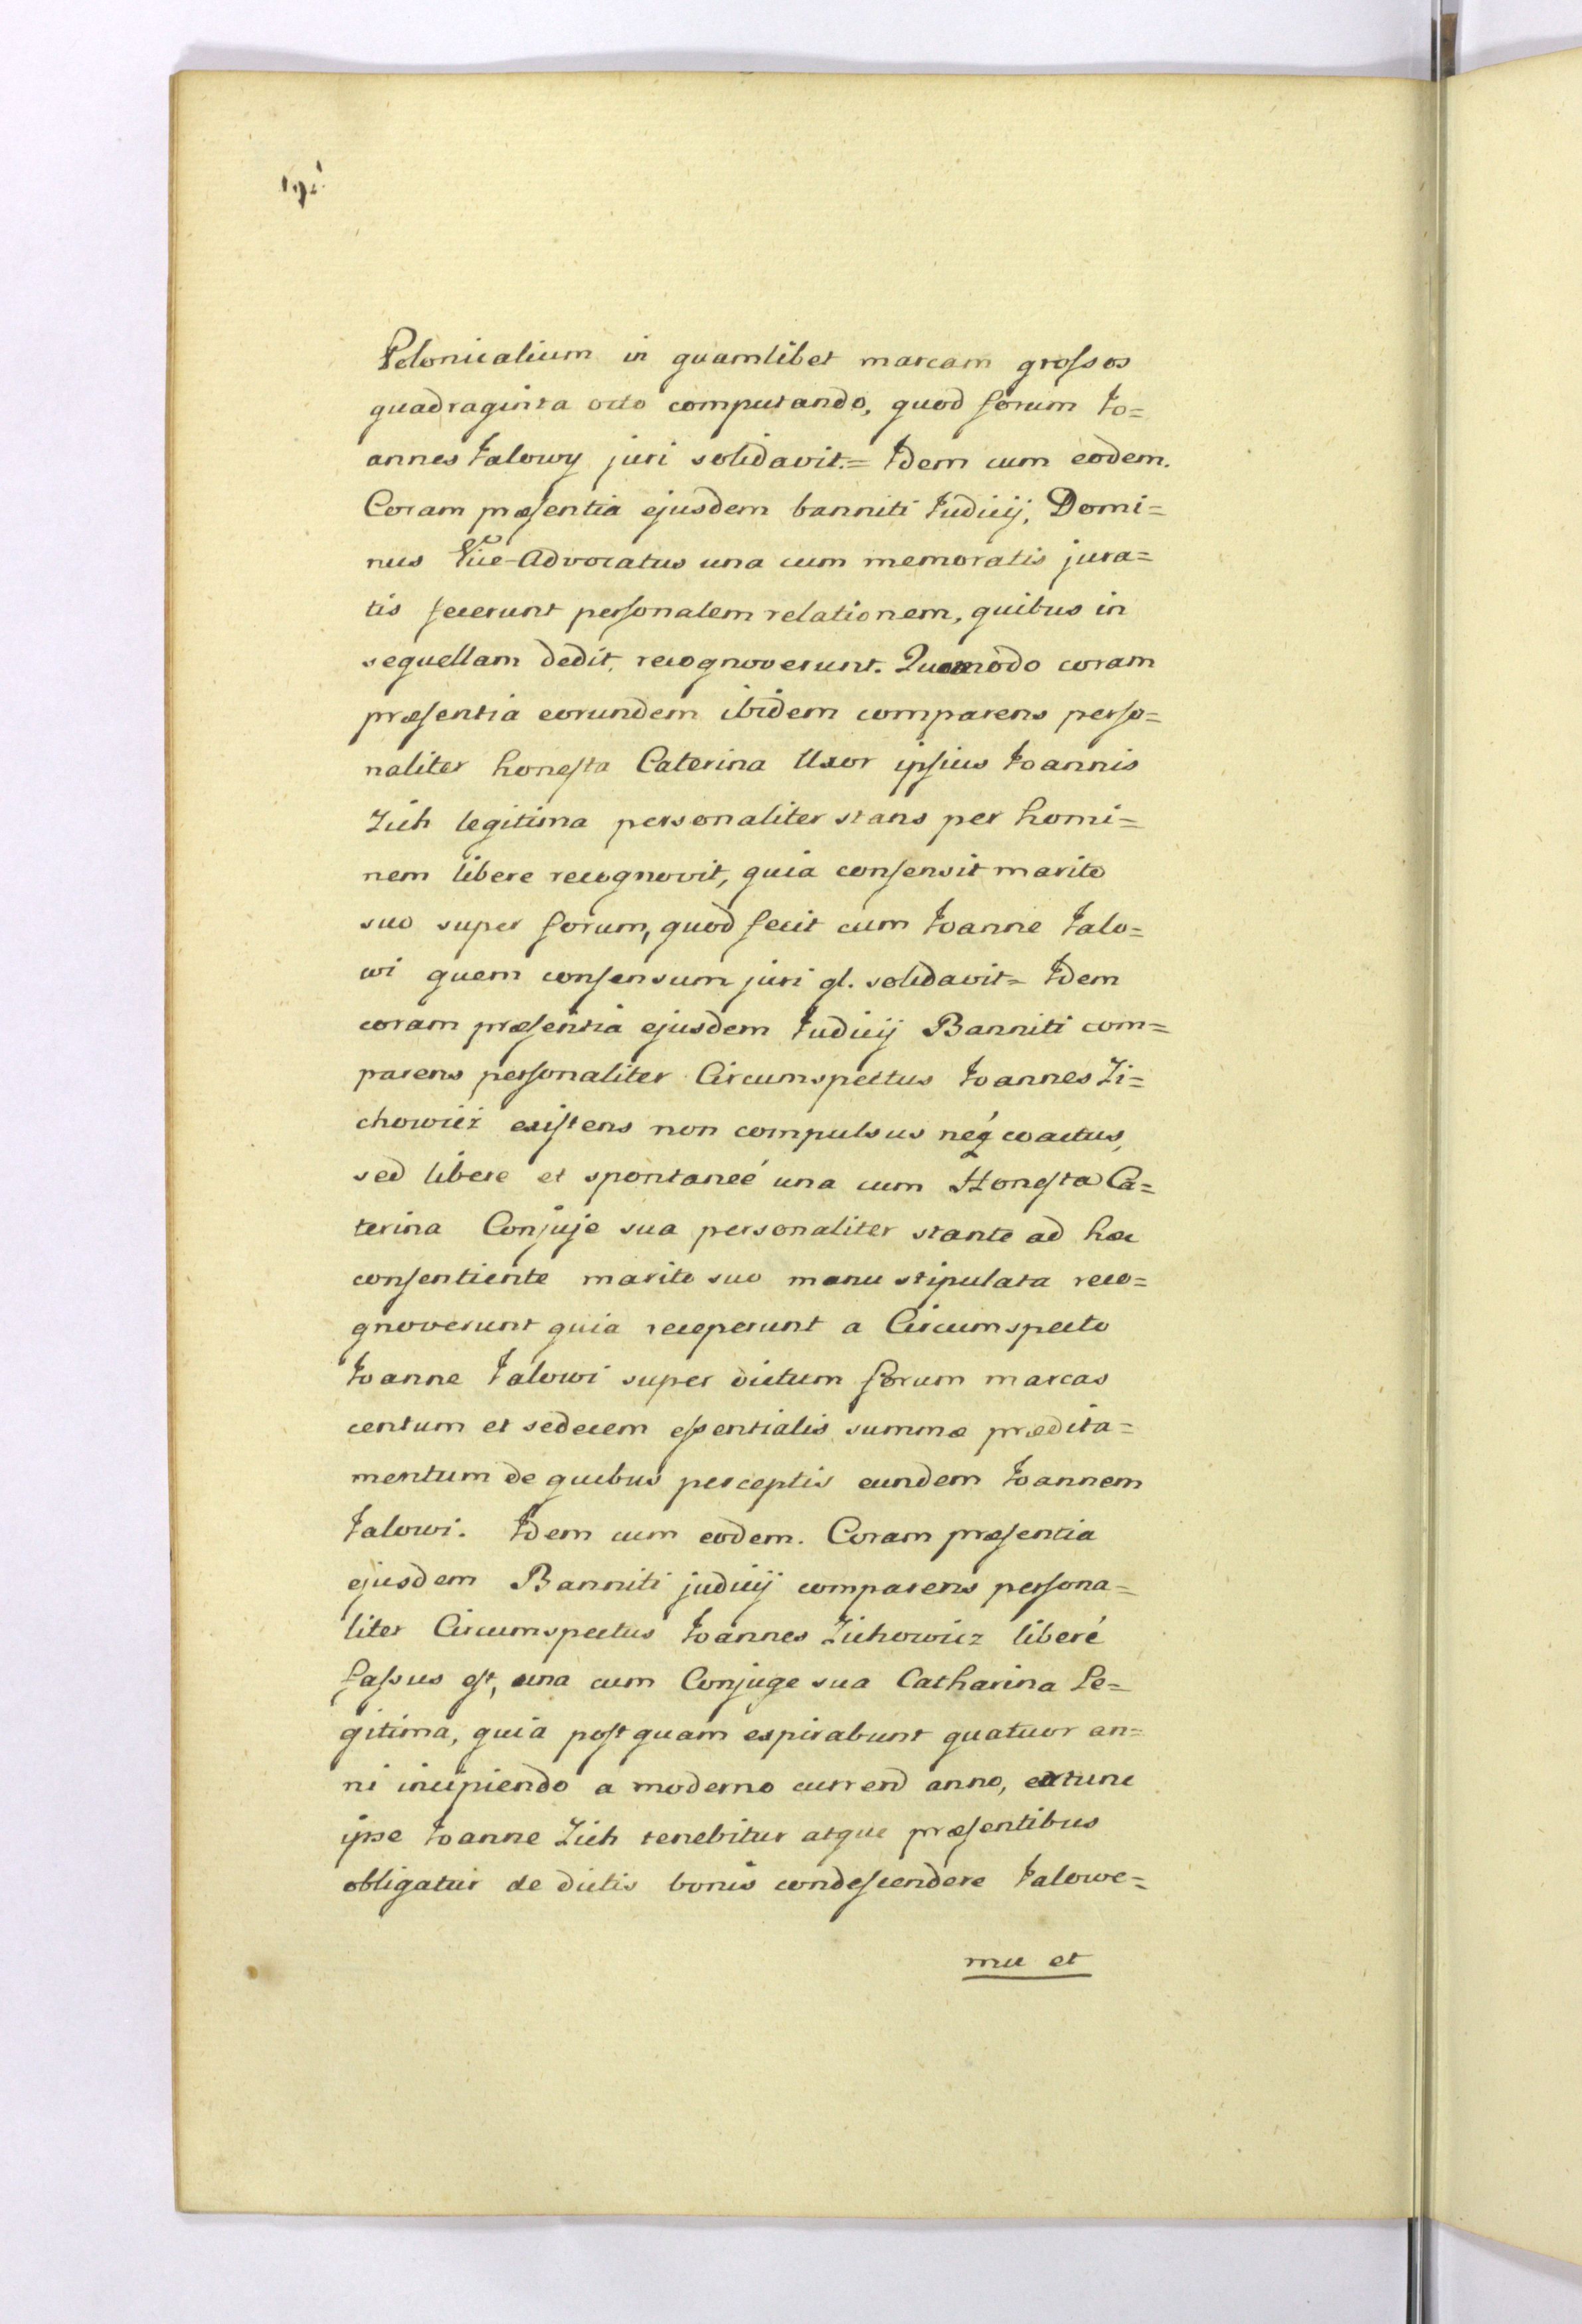 192.
Polonicalium in quamlibet marcam grossos
quadraginta octo computando, quod forum Jo=
annes Jalowy juri solidavit.= Idem cum eodem.
Coram præsentia ejusdem banniti Judicij, Domi=
nus Vice-Advocatus una cum memoratis jura=
tis fecerunt personalem relationem, quibus in
sequellam dedit, recognoverunt. Quomodo coram
præsentia eorundem ibidem comparens perso=
naliter honesta Caterina Uxor ipsius Joannis
Zich legitima personaliter stans per homi=
nem libere recognovit, quia consensit marito
suo super forum, quod fecit cum Joanne Jalo=
wi quem consensum juri gl. solidavit= Idem
coram præsentia ejusdem Judicij Banniti com=
parens personaliter Circumspectus Joannes Zi=
chowicz existens non compulsus neq́ coactus,
sed libere et spontaneé una cum Honesta Ca=
terina Conjuje sua personaliter stante ad hæc
consentiente marito suo manu stipulata reco=
gnoverunt quia receperunt a Circumspecto
Joanne Jalowi super dictum forum marcas
centum et sedecem essentialis summæ prædita=
mentum de quibus perceptis eundem Joannem
Jalowi. Idem cum eodem. Coram præsentia
ejusdem Banniti judicij comparens persona=
liter Circumspectus Joannes Zichowicz liberé
fassus est, una cum Conjuge sua Catharina Le=
gitima, quia postquam expirabunt quatuor an=
ni incipiendo a moderno currend anno, extunc
ipse Joanne Zich tenebitur atque præsentibus
obligatur de dictis bonis condescendere Jalowe=
mu et